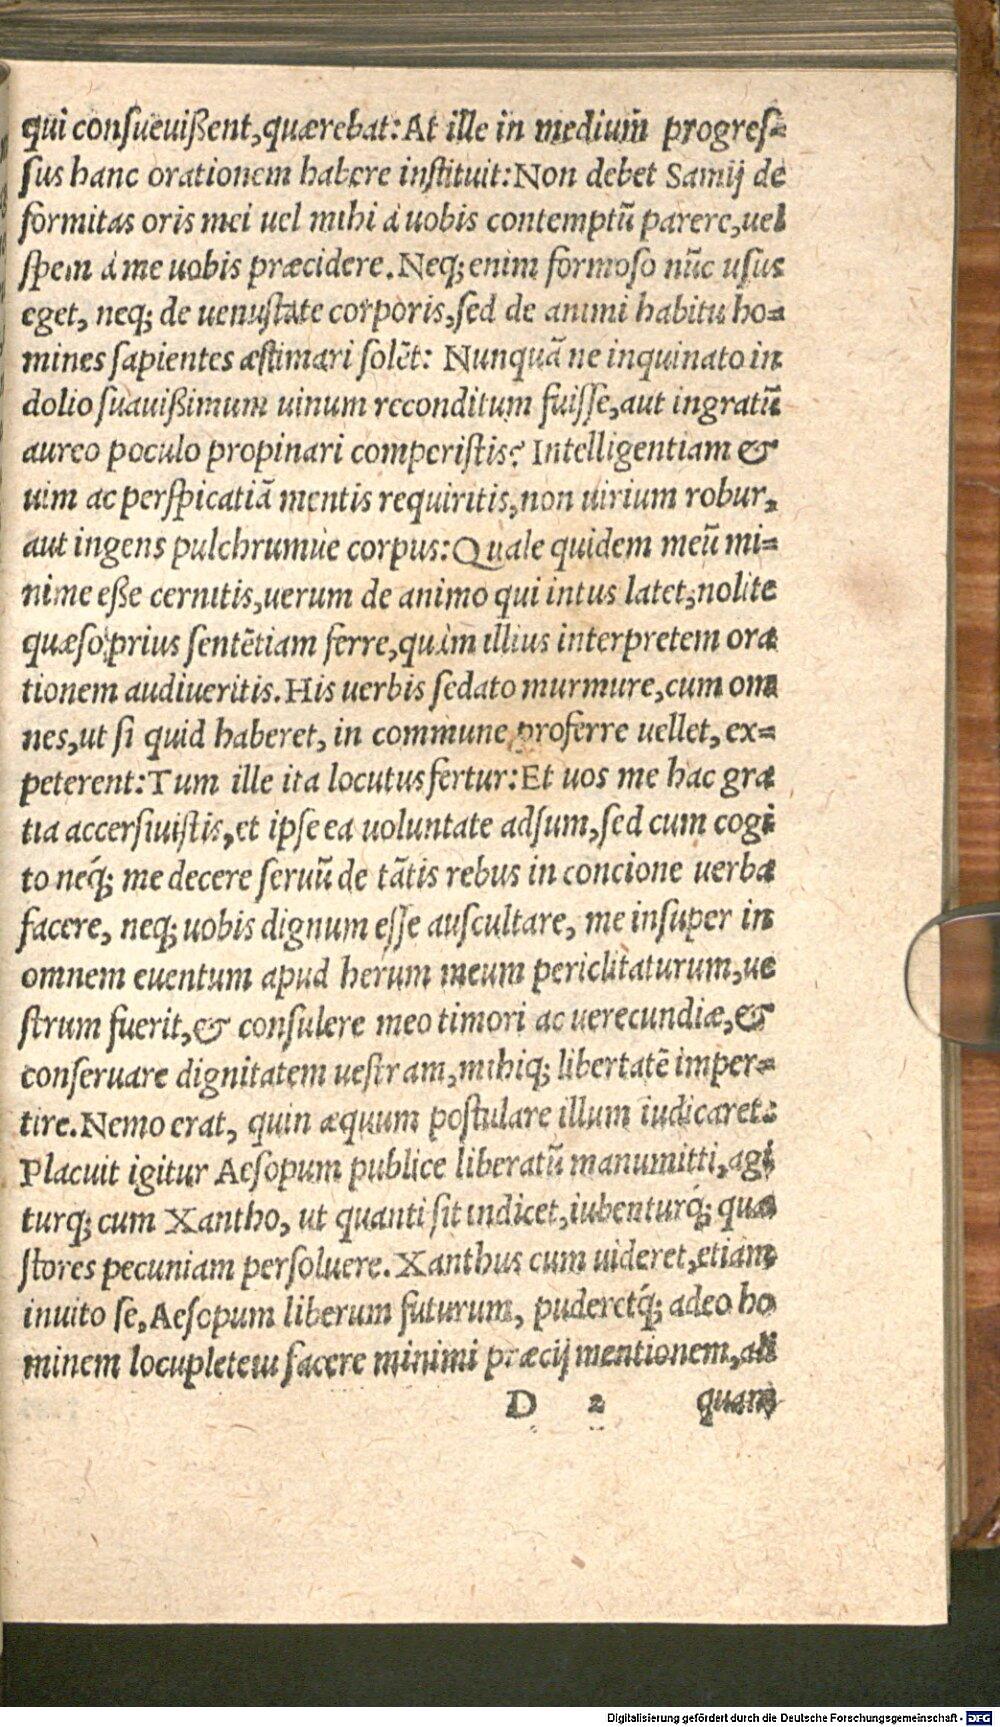 qui consueuißent,quærebat:At ille in medium progres=
sus hanc orationem habere instituit:Non debet Samij de
formitas oris mei uel mihi à uobis contemptũ parere,uel
spem à me uobis præcidere.Neq; enim formoso nũc usus
eget, neq; de uenustate corporis,sed de animi habitu ho=
mines sapientes æstimari solẽt: Nunquã ne inquinato in
dolio suauißimum uinum reconditum fuisse,aut ingratũ
aureo poculo propinari comperistis? Intelligentiam &
uim ac perspicatiã mentis requiritis,non uirium robur,
aut ingens pulchrumue corpus:Quale quidem meũ mi=
nime eße cernitis,uerum de animo qui intus latet,nolite
quæso prius sentẽtiam ferre,quàm illius interpretem ora
tionem audiueritis.His uerbis sedato murmure,cum om
nes,ut si quid haberet, in commune proferre uellet, ex=
peterent:Tum ille ita locutus fertur:Et uos me hac gra
tia accersiuistis,et ipse ea uoluntate adsum,sed cum cogi
to neq́; me decere seruũ de tãtis rebus in concione uerba
facere, neq; uobis dignum esse auscultare, me insuper in
omnem euentum apud herum meum periclitaturum,ue
strum fuerit,& consulere meo timori ac uerecundiæ,&
conseruare dignitatem uestram,mihiq; libertatẽ imper=
tire.Nemo erat, quin æquum postulare illum iudicaret:
Placuit igitur Aesopum publice liberatũ manumitti,agi
turq; cum Xantho, ut quanti sit indicet,iubenturq́; quæ
stores pecuniam persoluere.Xanthus cum uideret,etiam
inuito se,Aesopum liberum futurum, puderetq́; adeo ho
minem locupletem facere minimi præcij mentionem,ali
D 2 quam
Digitalisierung gefördert durch die Deutsche Forschungsgemeinschaft - DFG